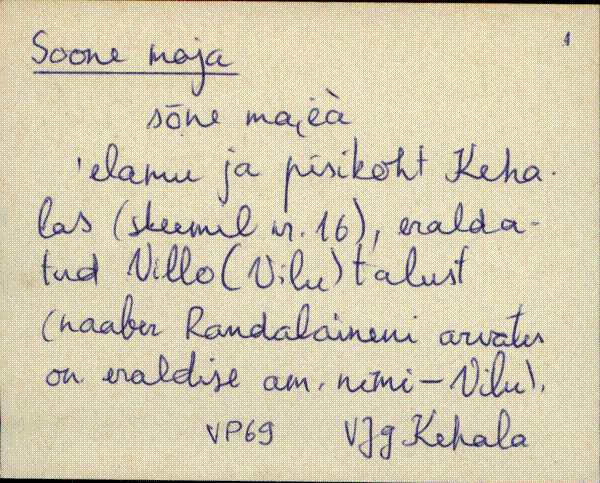 1
Soone maja
sōne majeà
'elamu ja pisikoht Keha-
las (skeemil nr. 16), eralda-
tud Villo (Vilu) talust
(naaber Randalaineni arvates
on eraldise am. nimi - Vilu).
VP69 VJg Kehala